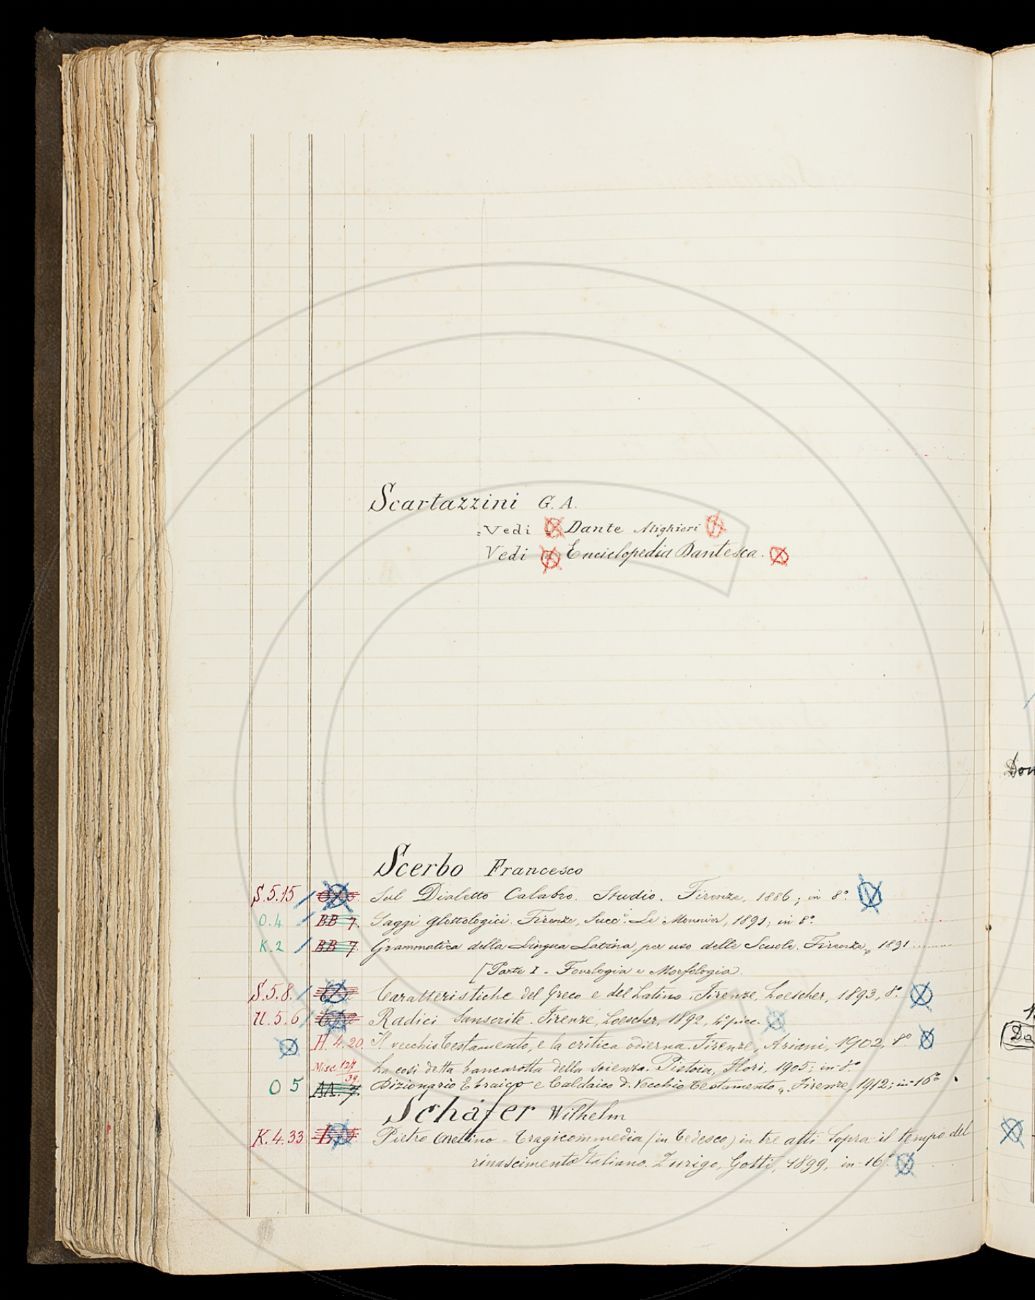 Scartazzini G. A.
Vedi Dante Alighieri
Vedi Enciclopedia Dantesca.
Scerbo Francesco
S.5.15 Sul Dialetto Calabro. Studio. Firenze, 1886; in 8°.
O.4 BB 7. Saggi glottologici. Firenze, Succ.ri Le Monnier, 1891, in 8°.
K.2 BB 7 Grammatica della Lingua Latina per uso delle Scuole, Firenze, 1891
Parte I - Fonologia e Morfologia
S.5.8. Caratteristiche del Greco e del Latino. Firenze, Loescher, 1893, 8°.
U.5.6 Radici Sanscrite. Firenze, Loescher, 1892,
H.4.20. Il vecchio testamento, e la critica odierna. Firenze, Ariani, 1902, 8°
Misc. La così detta bancarotta della scienza. Pistoia, Flori, 1905; in 8°
O 5 AA.7. Dizionario Ebraico e Caldaico d. Vecchio Testamento, Firenze, 1912; in 16°.
Schäfer Wilhelm
K.4.33 Pietro Aretino. Tragicommedia (in tedesco) in tre atti sopra il tempo del
rinascimento italiano. Zurigo, 1899, in 16°.
Don
Da